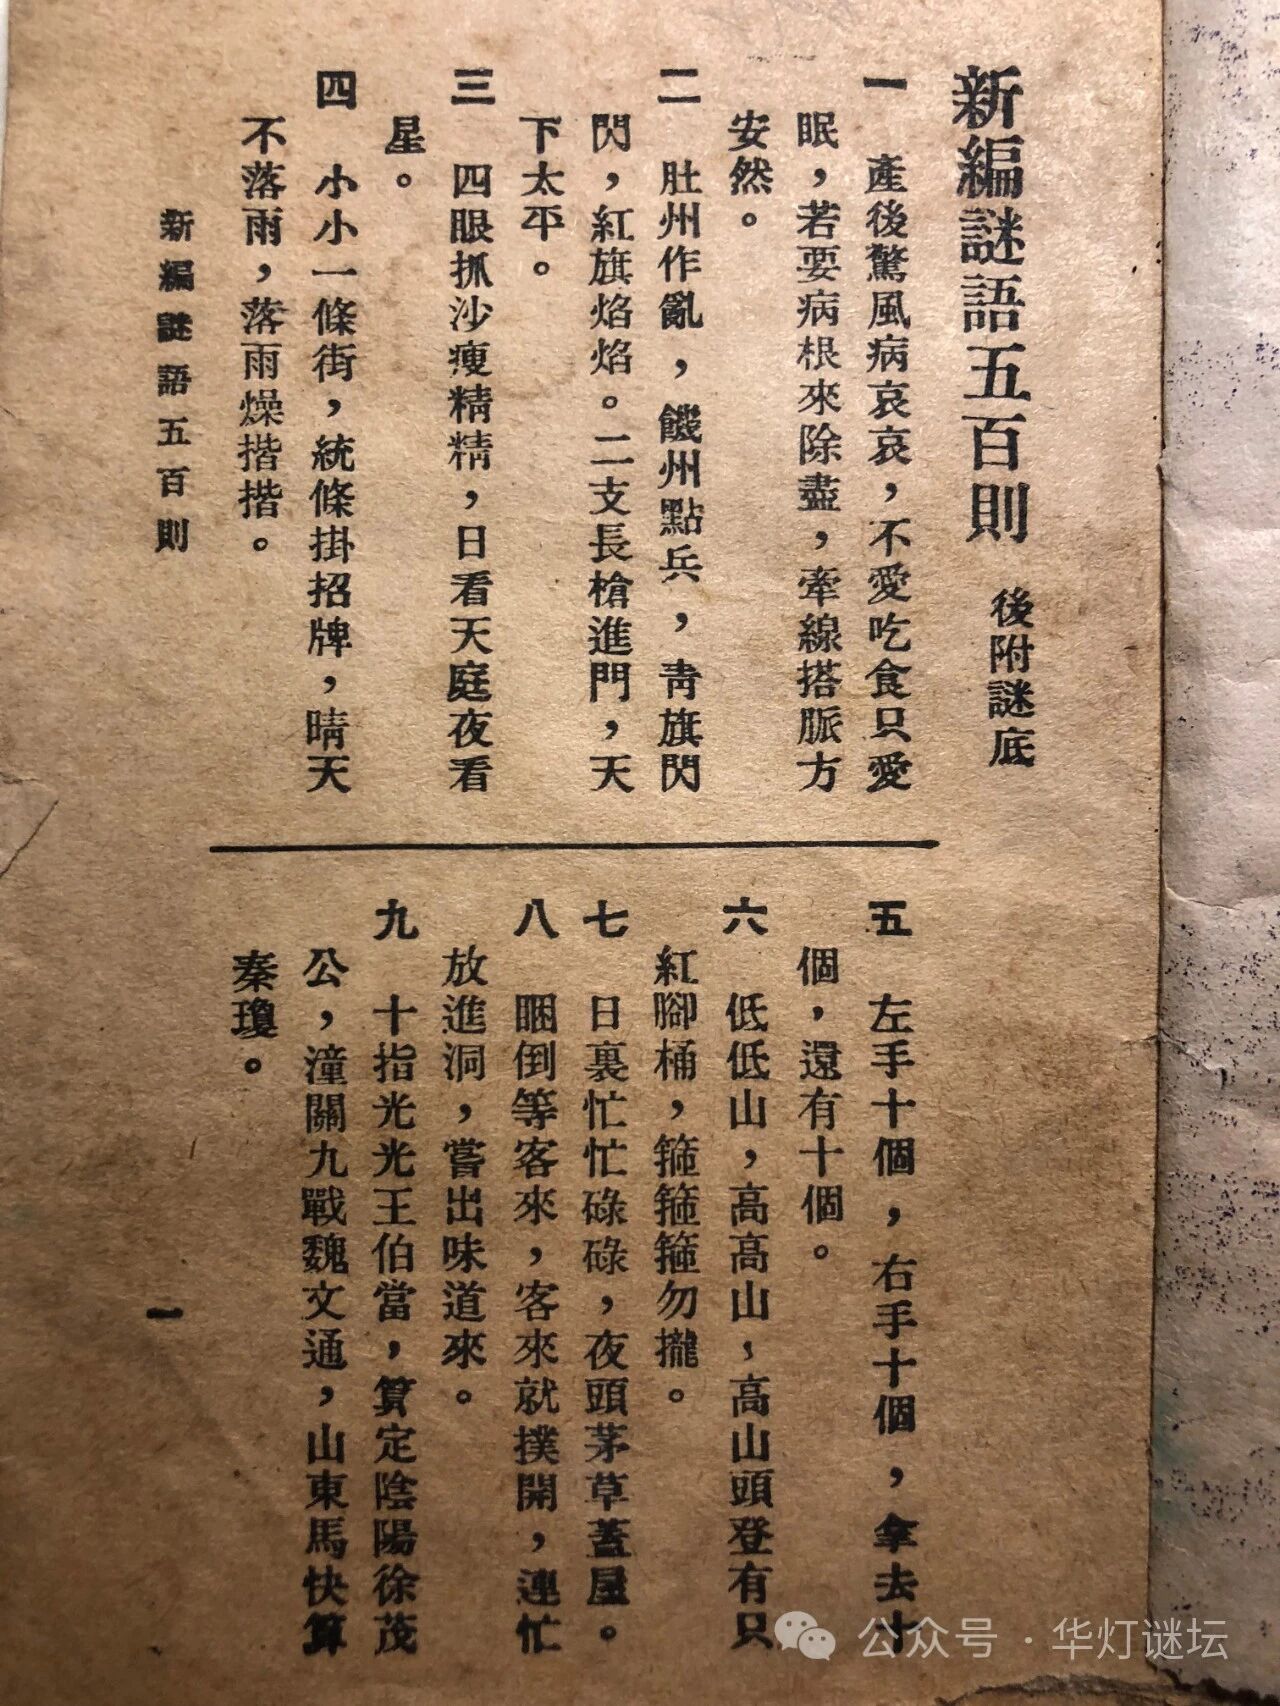 新編謎語五百則　後附謎底
一　產後驚風病哀哀，不愛吃食只愛
眠，若要病根來除盡，牽線搭脈方
安然。
二　肚州作亂，饑州點兵，青旗閃
閃，紅旗焰焰。二支長槍進門，天
下太平。
三　四眼抓沙瘦精精，日看天庭夜看
星。
四　小小一條街，統條掛招牌，晴天
不落雨，落雨燥揩揩。
五　左手十個，右手十個，拿去十
個，還有十個。
六　低低山，高高山，高山頭登有只
紅腳桶，箍箍箍勿攏。
七　日裏忙忙碌碌，夜頭茅草蓋屋。
八　睏倒等客來，客來就撲開，連忙
放進洞，嘗出味道來。
九　十指光光王伯當，算定陰陽徐茂
公，潼關九戰魏文通，山東馬快算
秦瓊。
新編謎語五百則
一
公众号·华灯谜坛